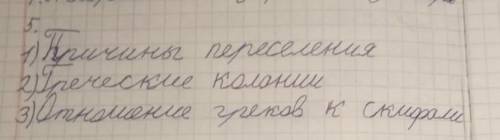 5.
1) Причины переселения
2) Греческие колонии
3) Отношение греков к скифам